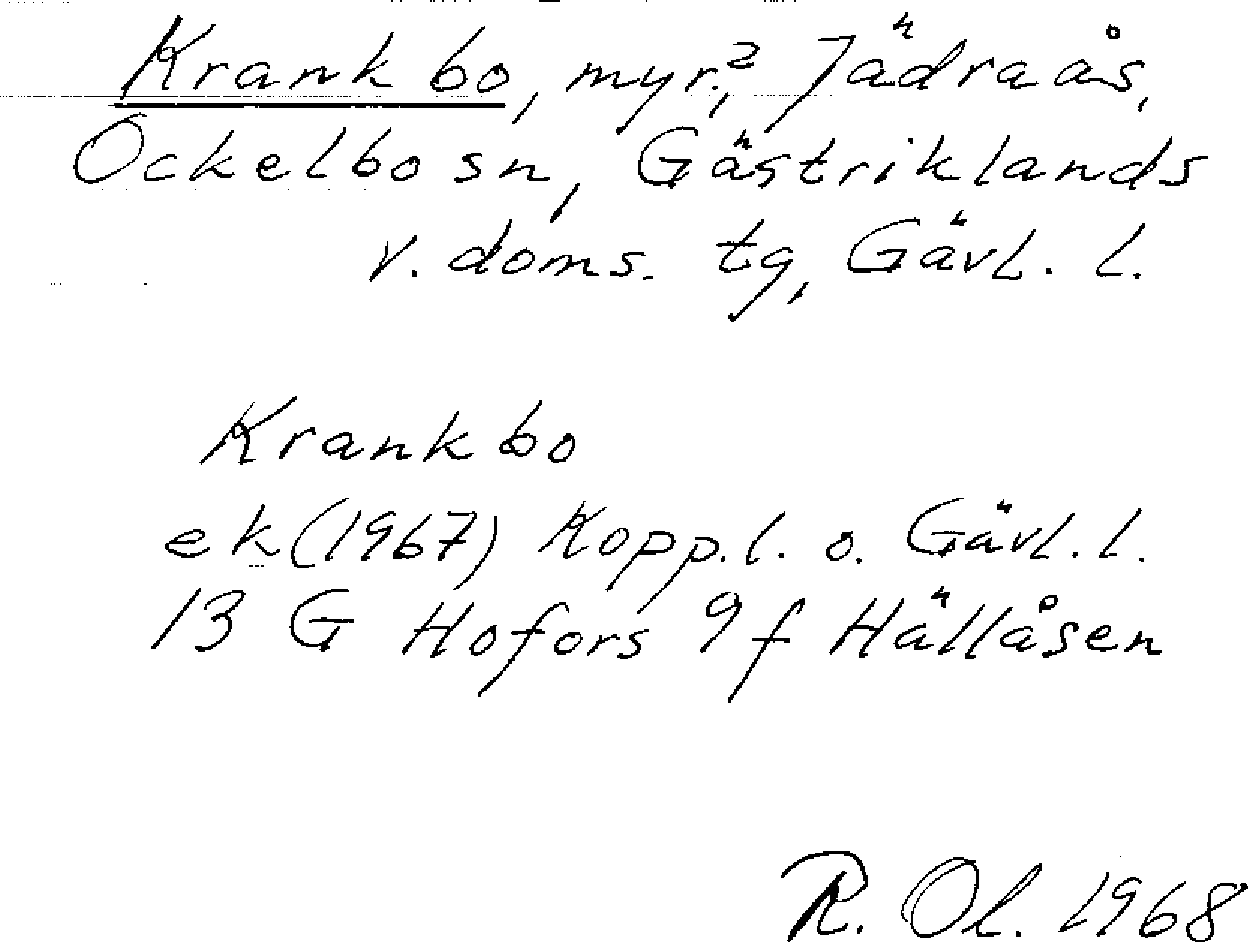 Krankbo, myr.², Jädraås,
Ockelbo sn, Gästriklands
v. doms. tg, Gävl. l.
Krankbo
ek (1967) Kopp. l. o. Gävl. l.
13 G Hofors 9f Hällåsen
R. Ol. 1968